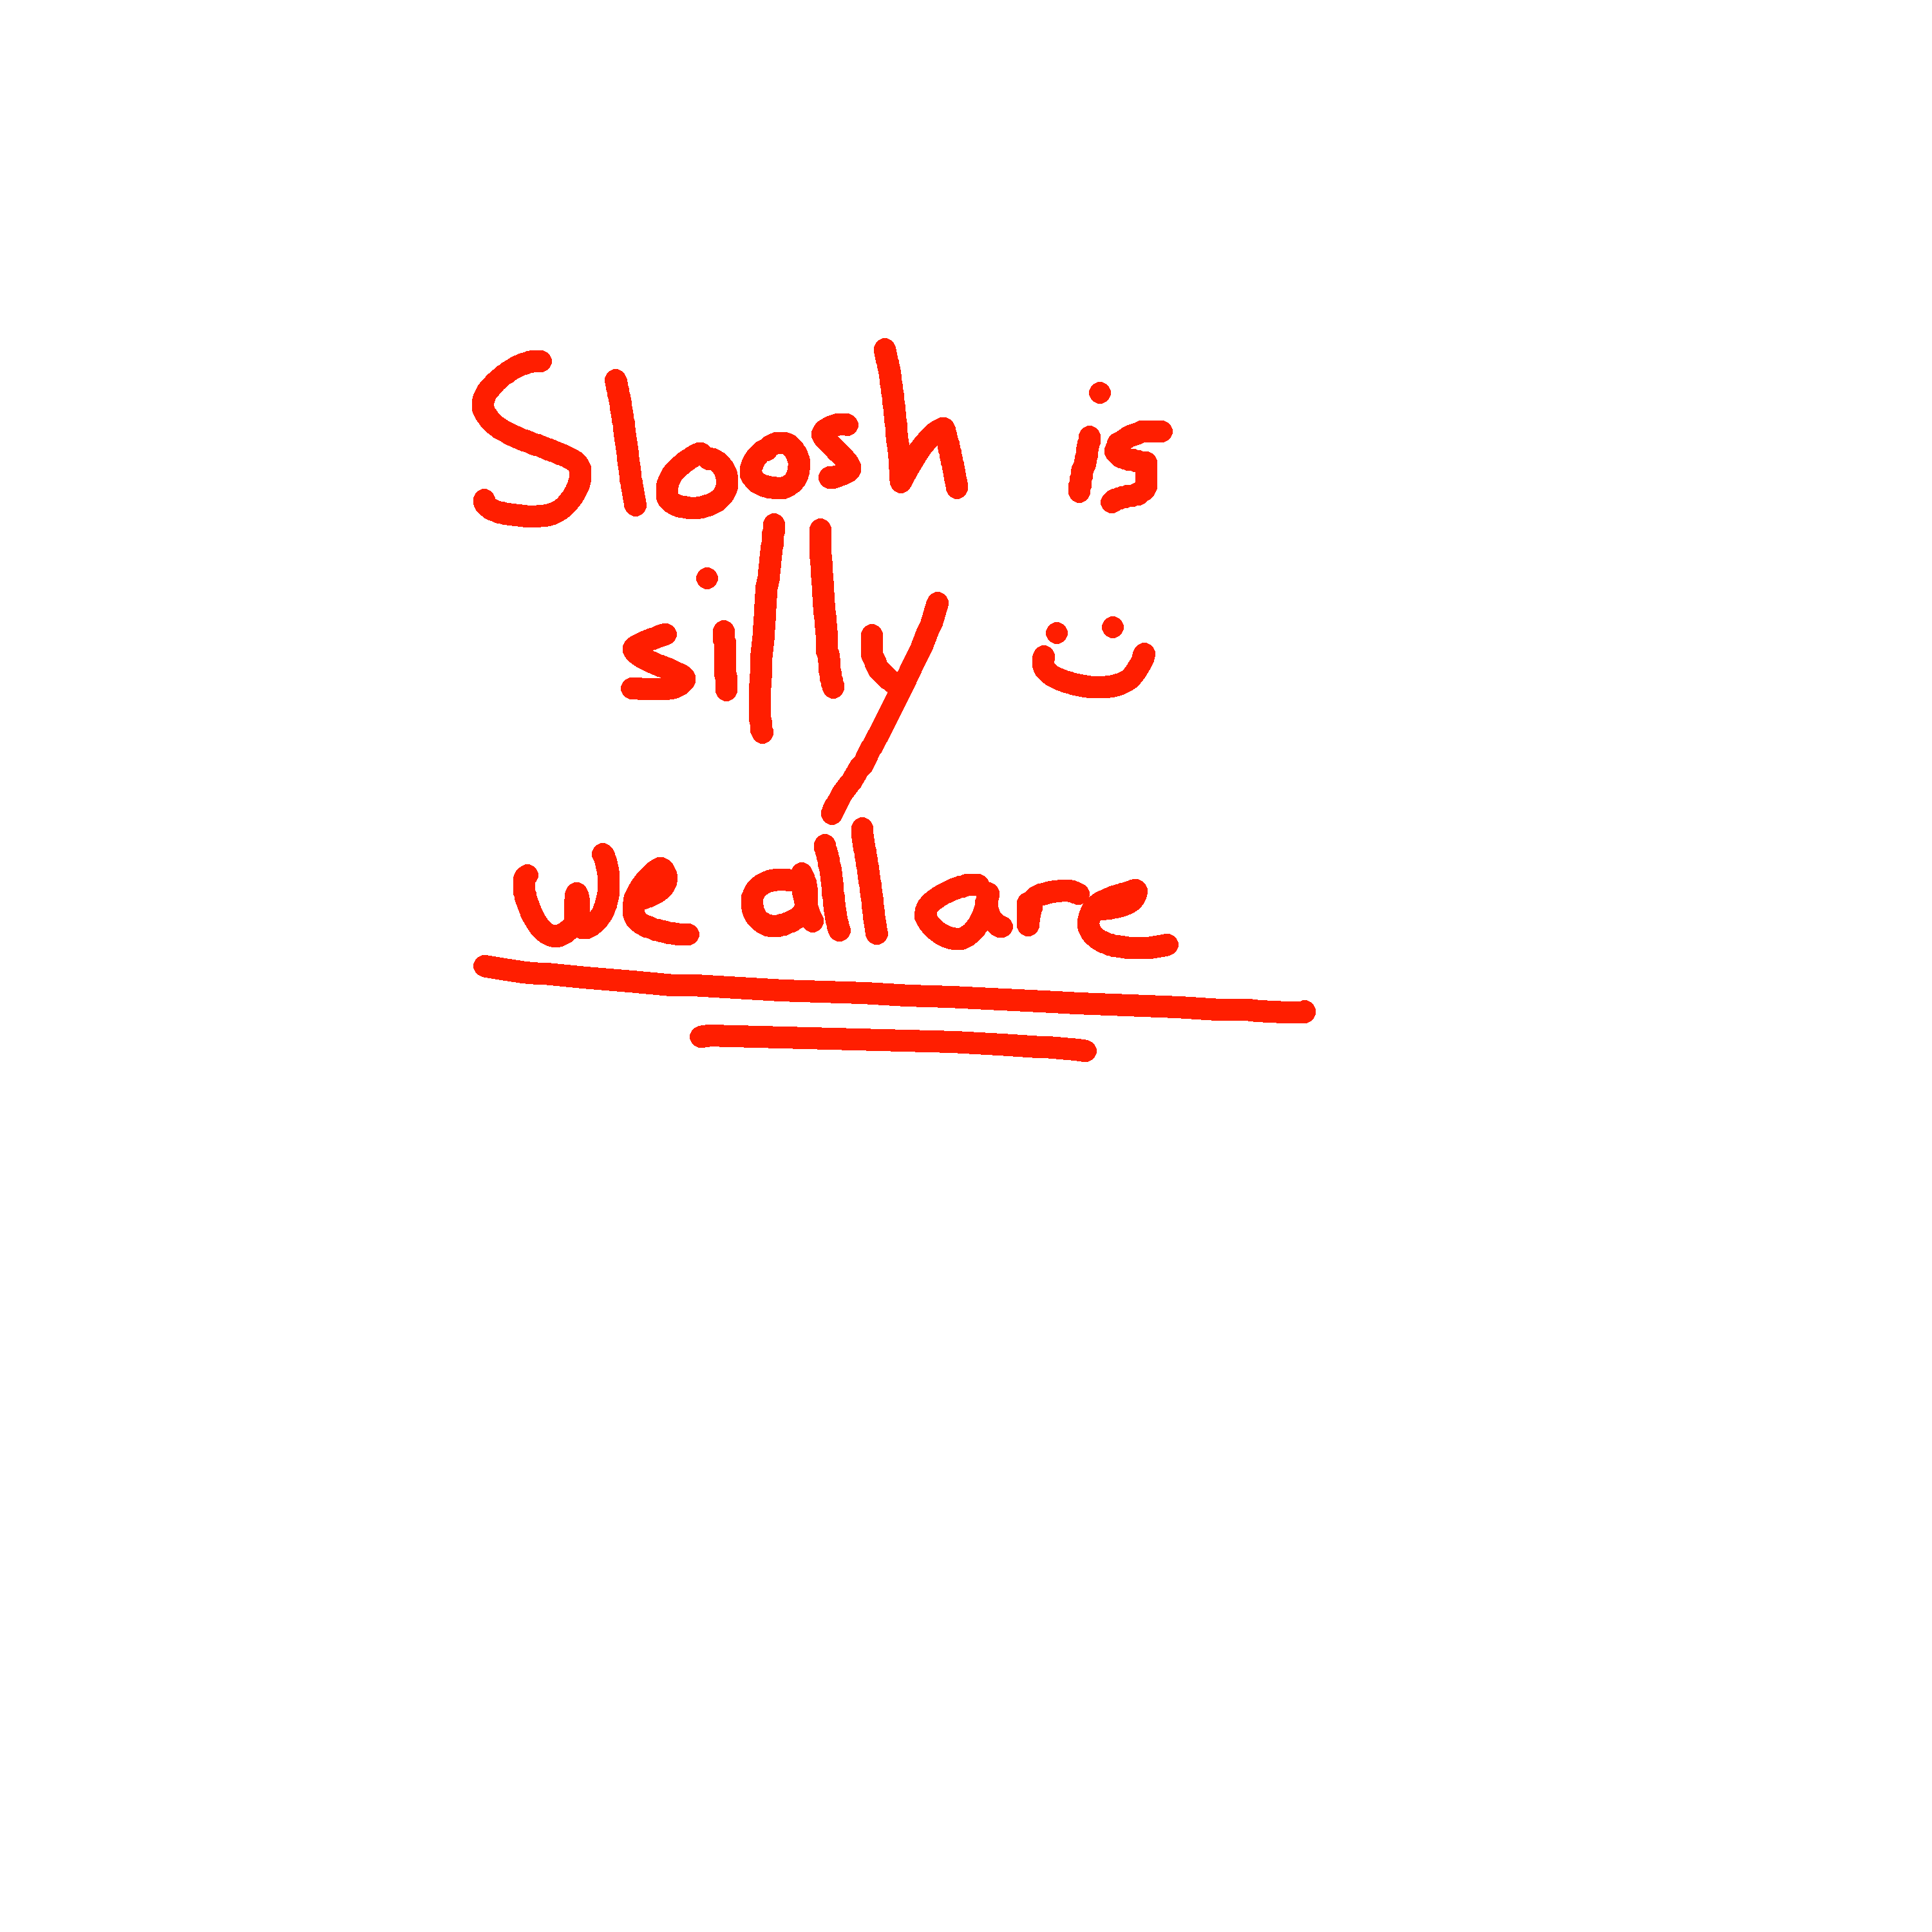 Sloosh is
silly
we all are